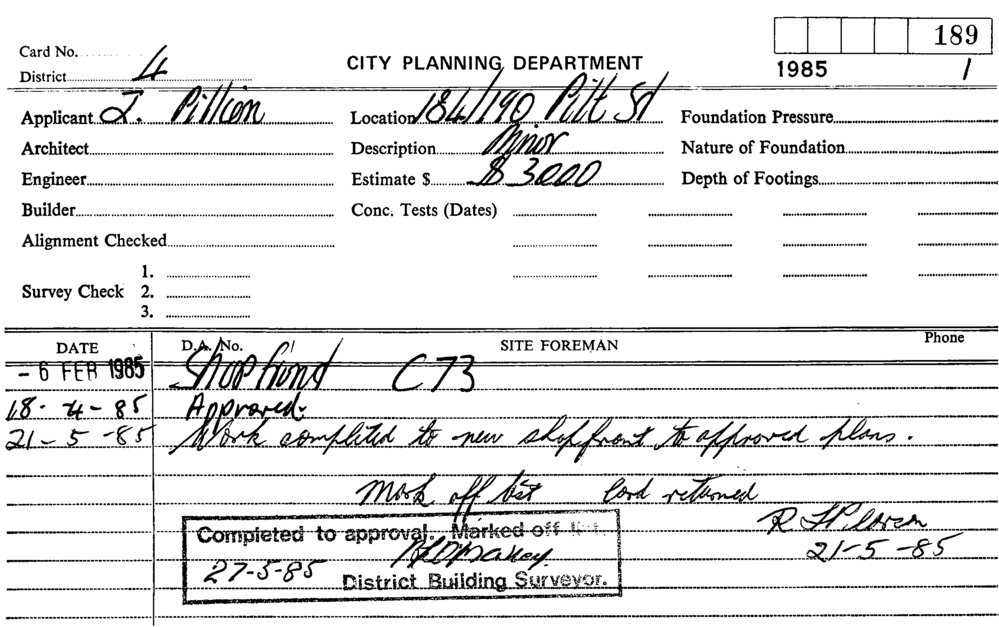 189
Card No.
1985 /
CITY PLANNING DEPARTMENT
District 4
Applicant J. Pillion Location 184/190 Pitt St Foundation Pressure
Architect Description Minor Nature of Foundation
Engineer Estimate $ $3000 Depth of Footings
Builder Conc. Tests (Dates)
Alignment Checked
1.
Survey Check 2.
3.
DATE D.A. No. SITE FOREMAN Phone
- 6 FEB 1985 Shop front C73
18 - 4 - 85 Approved.
21 - 5 - 85 Work completed to new shopfront to approved plans.
Mark off list Card returned
Completed to approval. Marked off list.
21-5-85
27-5-85
District Building Surveyor.